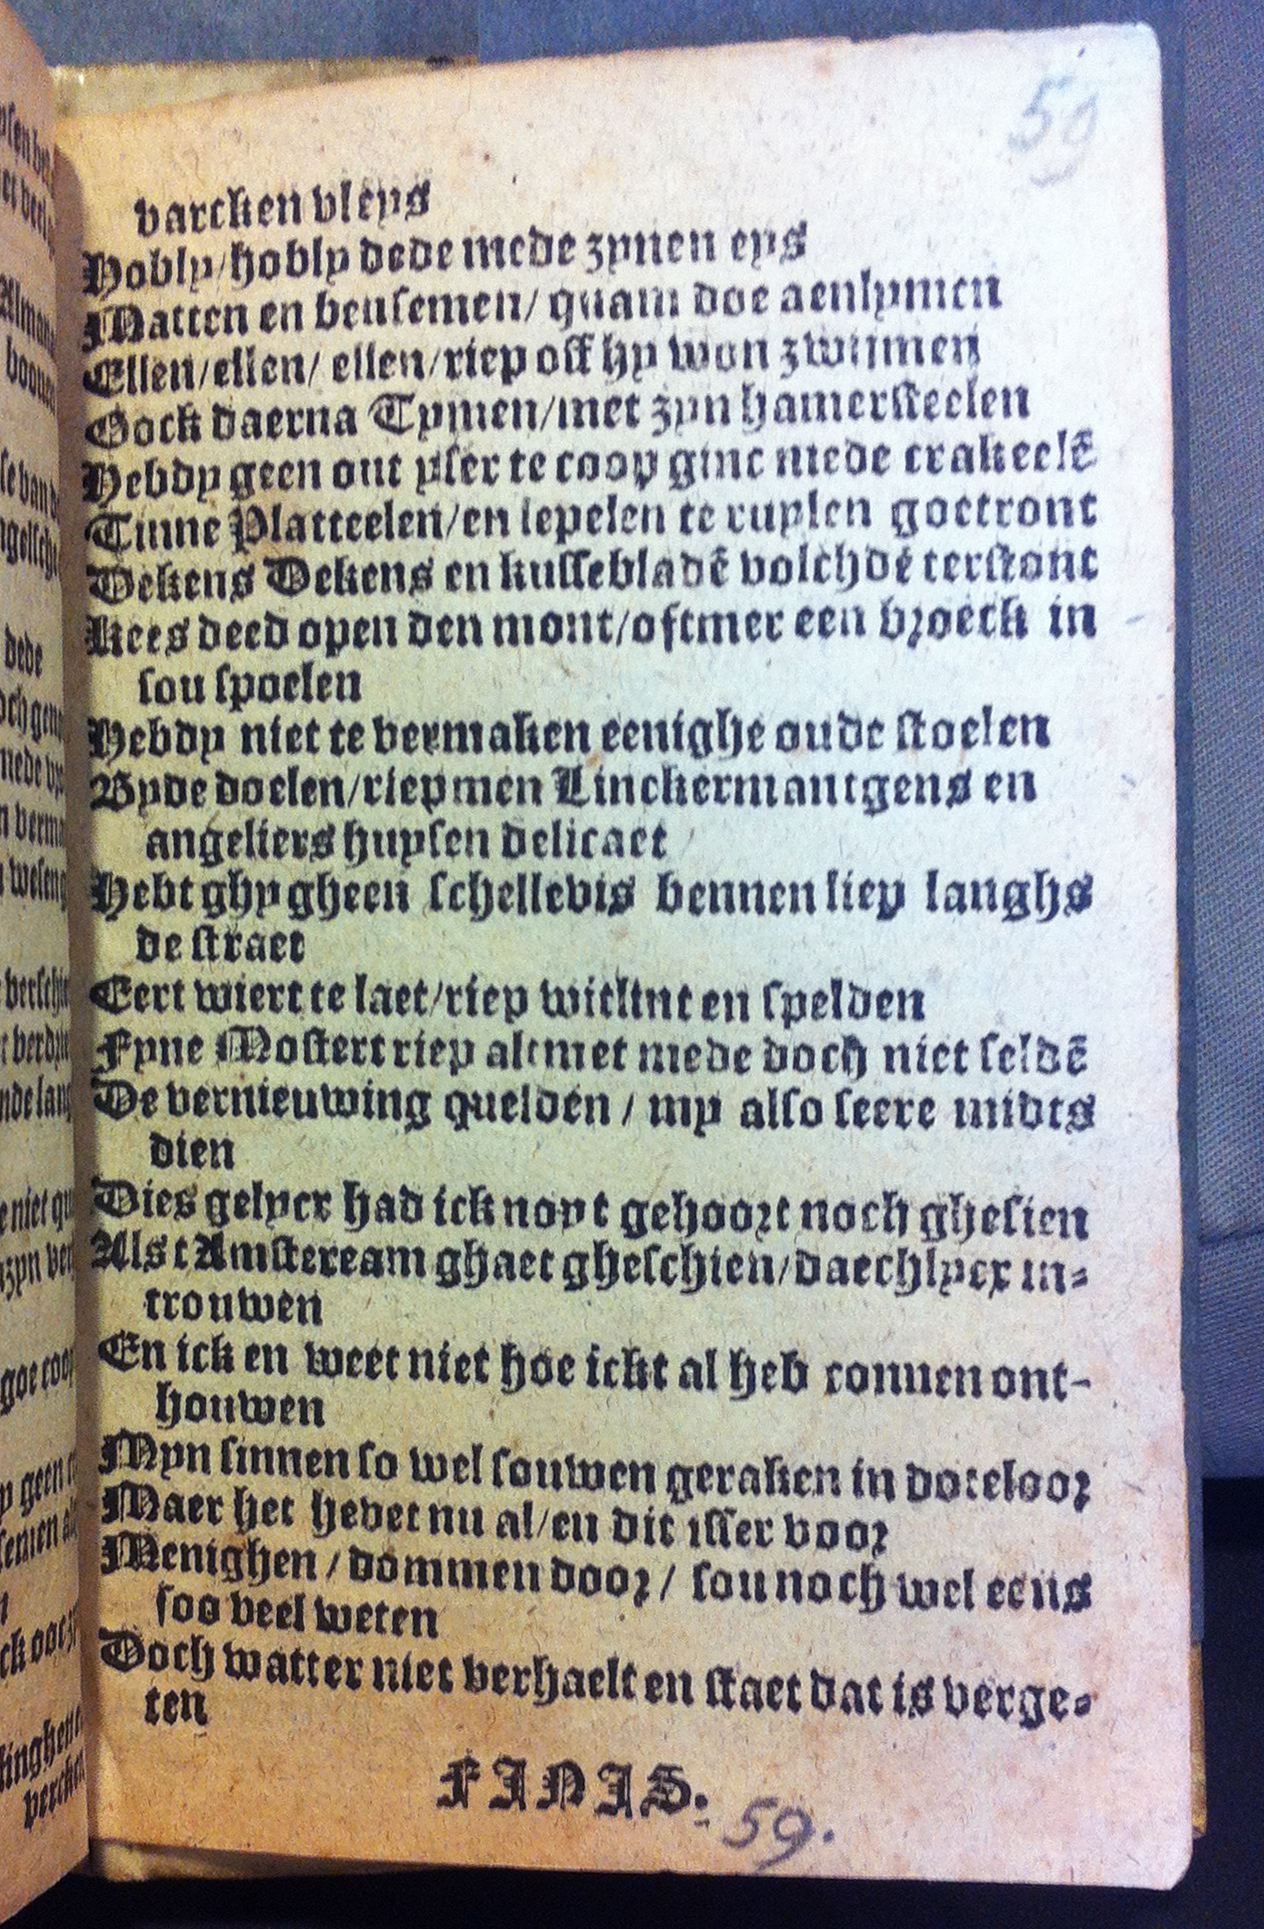 59
varcken vleys
Hobly/hobly dede mede zynen eys
Matten en beusemen/ quam doe aenlymen
Ellen/ellen/ ellen/riep off hy won zwijmen
Oock daerna Tymen/met zyn hamersteelen
Hebdy geen out yser te coop ginc mede crakeelẽ
Tinne Platteelen/en lepelen te ruylen goetront
Dekens Dekens en kussebladẽ volchdẽ terstont
Kees deed open den mont/oftmer een broeck in
sou spoelen
Hebdy niet te vermaken eenighe oude stoelen
Byde doelen/riepmen Linckermantgens en
angeliers huysen delicaet
Hebt ghy gheen schellevis bennen liep langhs
de straet
Eert wiert te laet/riep witlint en spelden
Fyne Mostert riep altmet mede doch niet seldẽ
De vernieuwing quelden / my also seere midts
dien
Dies gelycx had ick noyt gehoort noch ghesien
Als t Amsteream ghaet gheschien/daechlycx in-
trouwen
En ick en weet niet hoe ickt al heb connen ont-
houwen
Myn sinnen so wel souwen geraken in doteloor
Maer het hebet nu al/en dit isser voor
Menighen / dommen door / sou noch wel eens
soo veel weten
Doch watter niet verhaelt en staet dat is verge-
ten
FINIS.
59.